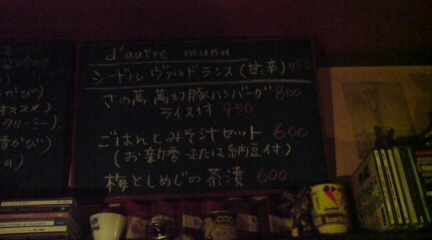 d'autre munu
シードル ヴァルドランス (甘、辛) 950
さの萬 萬幻豚ハンバーグ 800
ライス付 950
ごはんとみそ汁セット 600
(お新香 または 納豆付)
梅としめじの茶漬 600
オススメ)
クリーミー)